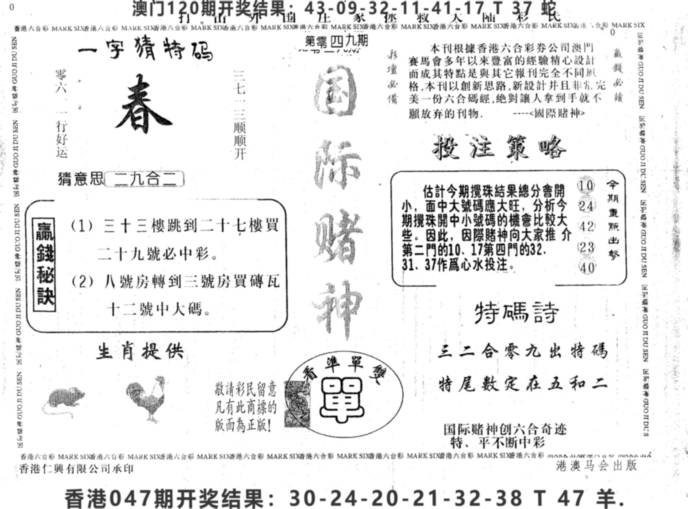 澳门120期开奖结果：43-09-32-11-41-17 T 37 蛇
第零四九期
一字猜特码
春
零六、一行好运
三七一三顺顺开
猜意思 二九合二
赢錢秘訣
(1) 三十三樓跳到二十七樓買
二十九號必中彩。
(2) 八號房轉到三號房買磚瓦
十二號中大碼。
生肖提供
敬請彩民留意
凡有此商標的
版面為正版!
国际赌神
看準單雙
單
本刊根據香港六合彩券公司澳門
賽馬會多年以來豐富的經驗精心設計
而成其特點是與其它報刊完全不同
格.本刊以創新思路.新設計并且非常完
美一份六合碼經.絶對讓人拿到手就不
願放弃的刊物. ----<國際賭神>
投注策略
估計今期攪珠結果總分會開
小，面中大號碼應大旺，分析今
期攪珠開中小號碼的機會比較大
些。因此，因際賭神向大家推介
第二門的10、17第四門的32.
31.37作爲心水投注。
10
24
42
23
40
今期重版出擊
特碼詩
三二合零九出特碼
特尾數定在五和二
国际赌神创六合奇迹
特、平不断中彩
香港仁興有限公司承印
港澳马会出版
香港047期开奖结果：30-24-20-21-32-38 T 47 羊.